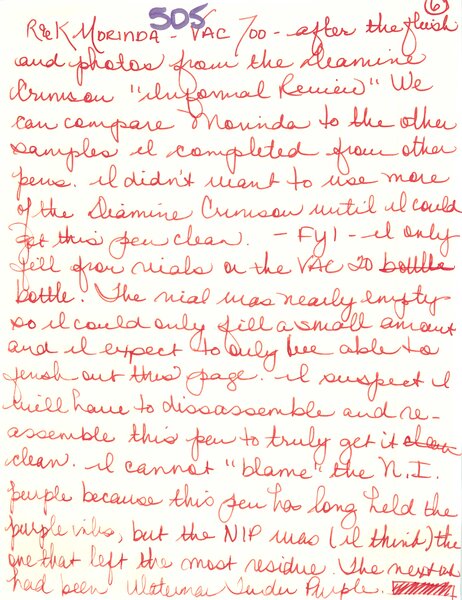 505
6
R&K MORINDA - VAC 700 - after the flush
and photos from the Diamine
Crimson "Informal Review" We
can compare Morinda to the other
samples I completed from other
pens. I didn't want to use more
of the Diamine Crimson until I could
get this pen clean. - FYI - I only
fill from vials or the VAC 20 bottle
bottle. The vial was nearly empty
so I could only fill a small amount
and I expect to only be able to
finish out this page. I suspect I
will have to dissassemble and re-
assemble this pen to truly get it clean
clean. I cannot "blame" the N.I.
purple because this pen has long held the
purple inks, but the NIP was (I think) the
one that left the most residue. The next ink
had been Waterman Tender Purple.